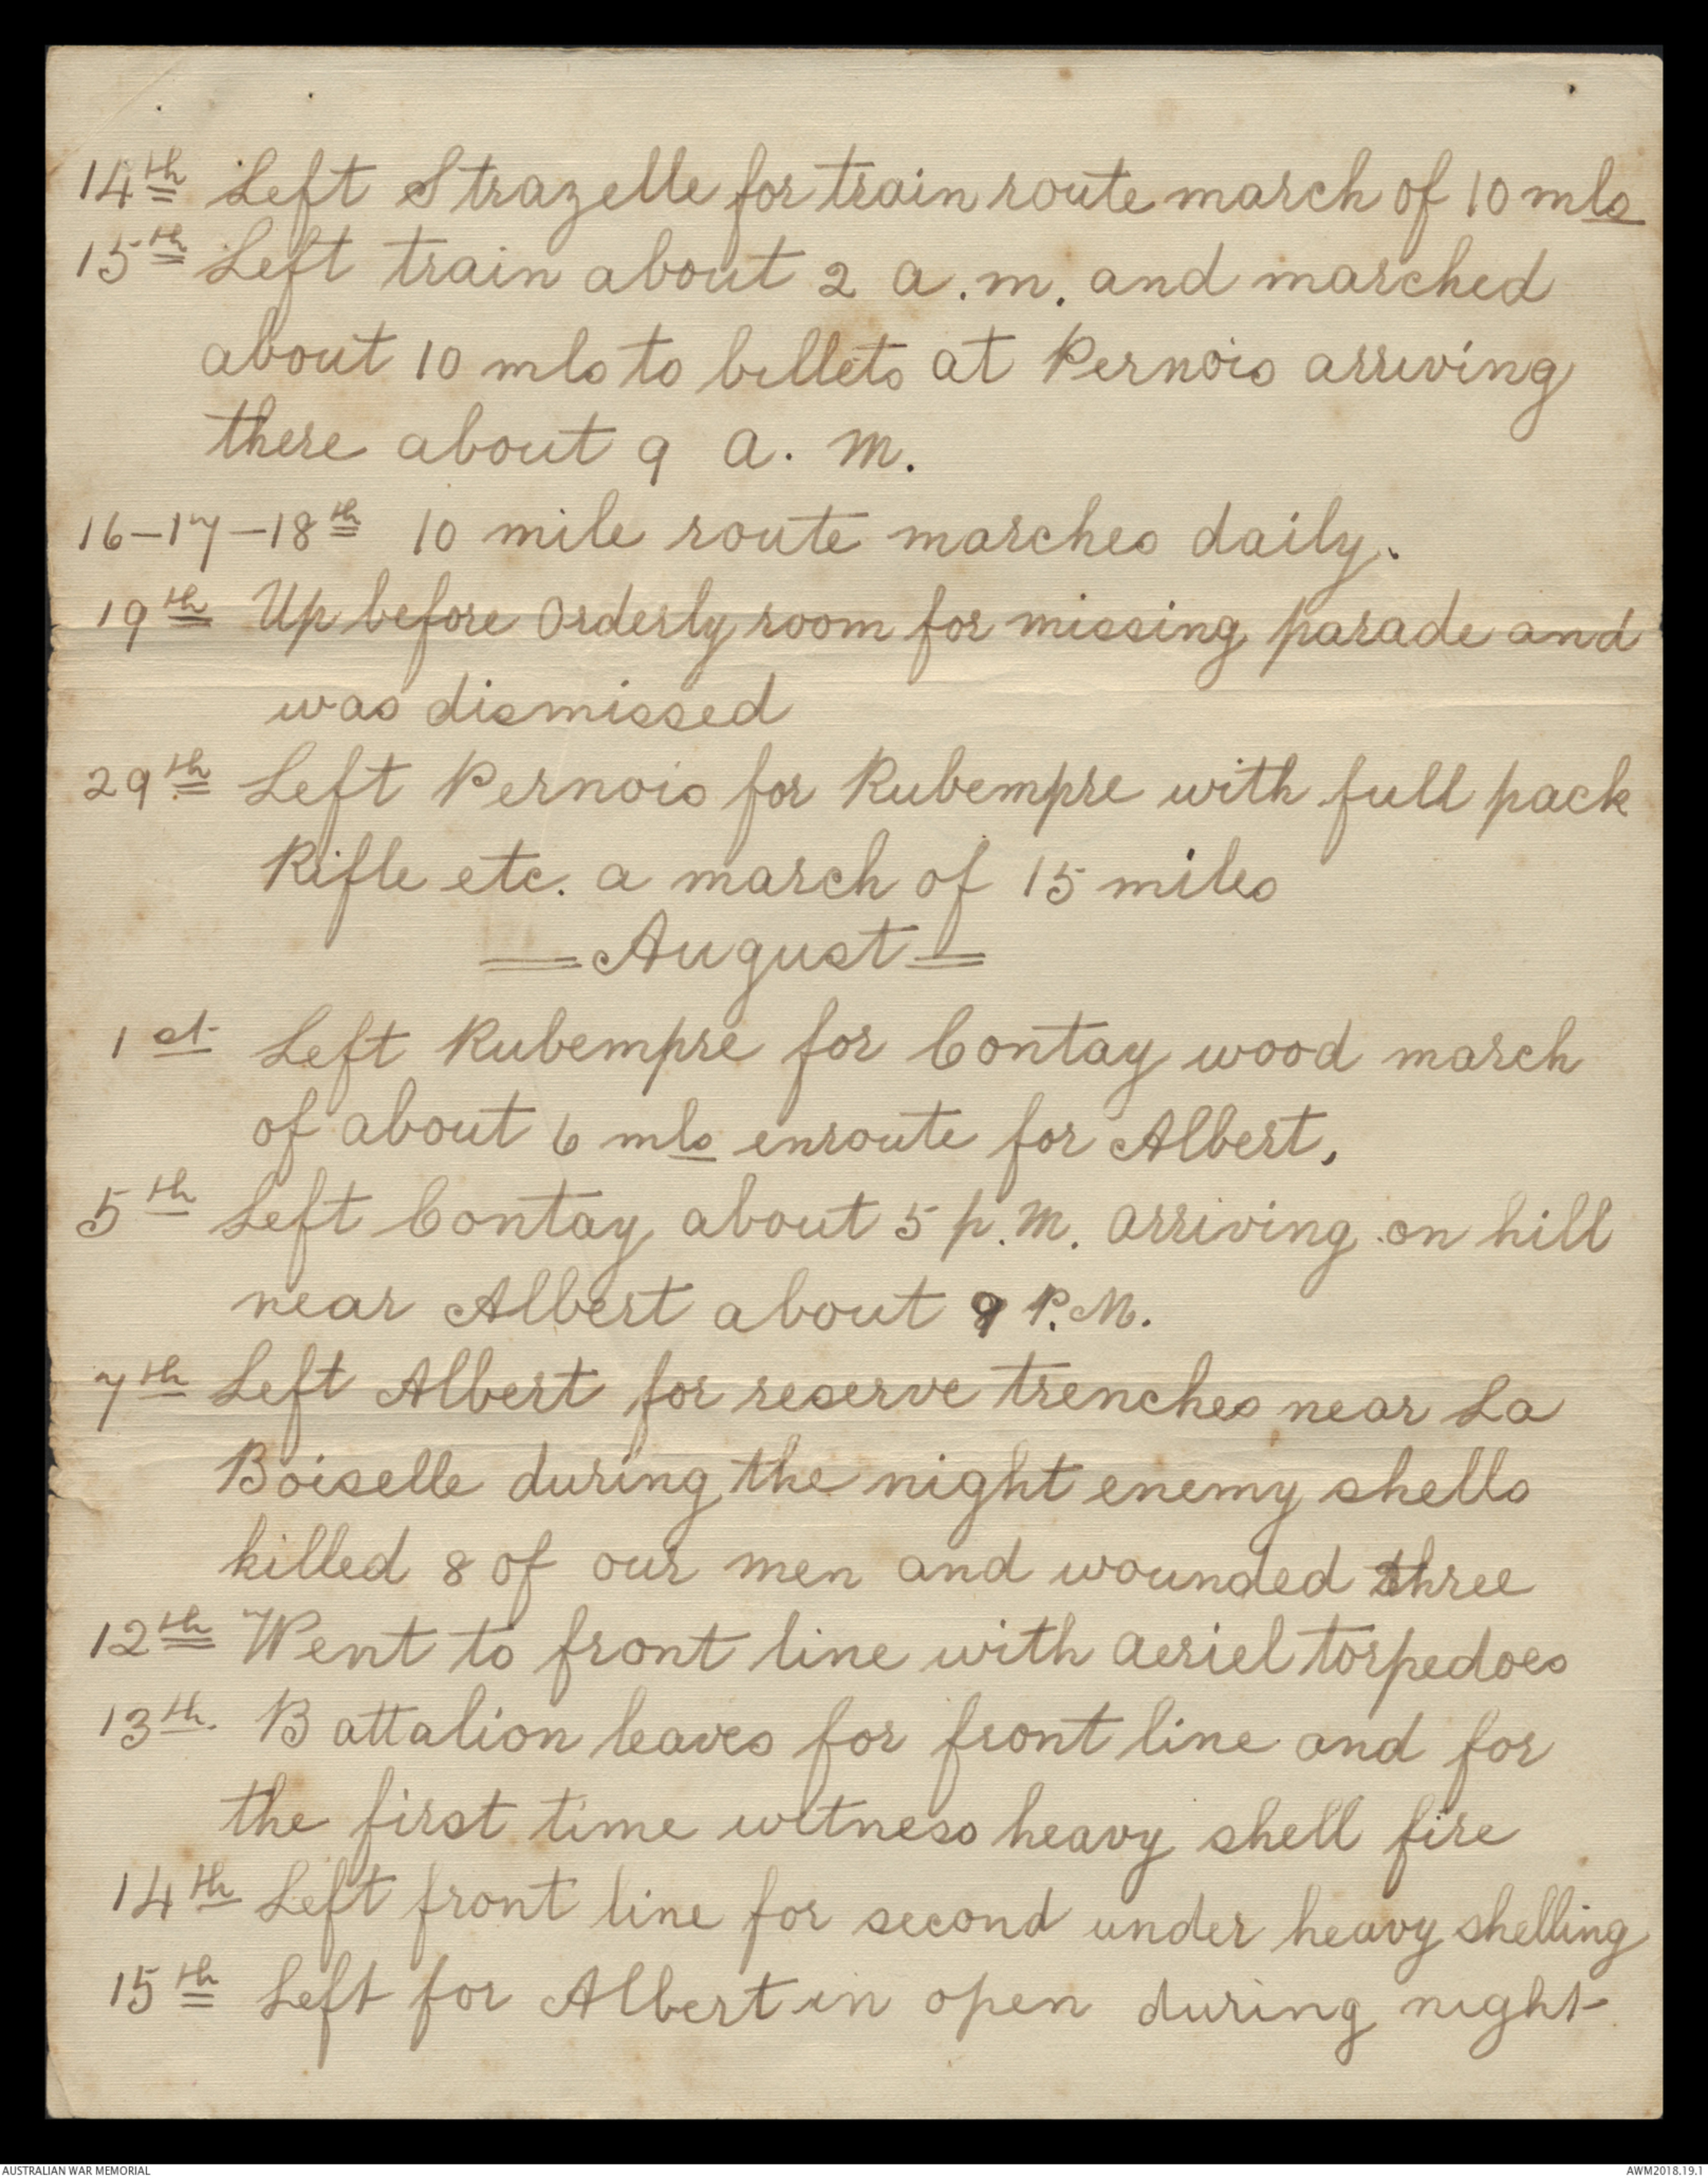 14th Left Strazelle for train route march of 10 mls
15th Left train about 2 a.m. and marched
about 10 mls to billets at Pernois arriving
there about 9 a.m.
16-17-18th 10 mile route marches daily.
19th Up before Orderly room for missing parade and
was dismissed
29th Left Pernois for Rubempre with full pack
Rifle etc. a march of 15 miles
= August =
1st Left Rubempre for Contay wood march
of about 6 mls enroute for Albert.
5th Left Contay about 5 p.m. arriving on hill
near Albert about 9 P.M.
7th Left Albert for reserve trenches near La
Boiselle during the night enemy shells
killed 8 of our men and wounded three
12th Went to front line with aeriel torpedoes
13th. Battalion leaves for front line and for
the first time witness heavy shell fire
14th Left front line for second under heavy shelling
15th Left for Albert in open during night
AUSTRALIAN WAR MEMORIAL
AWM2018.19.1